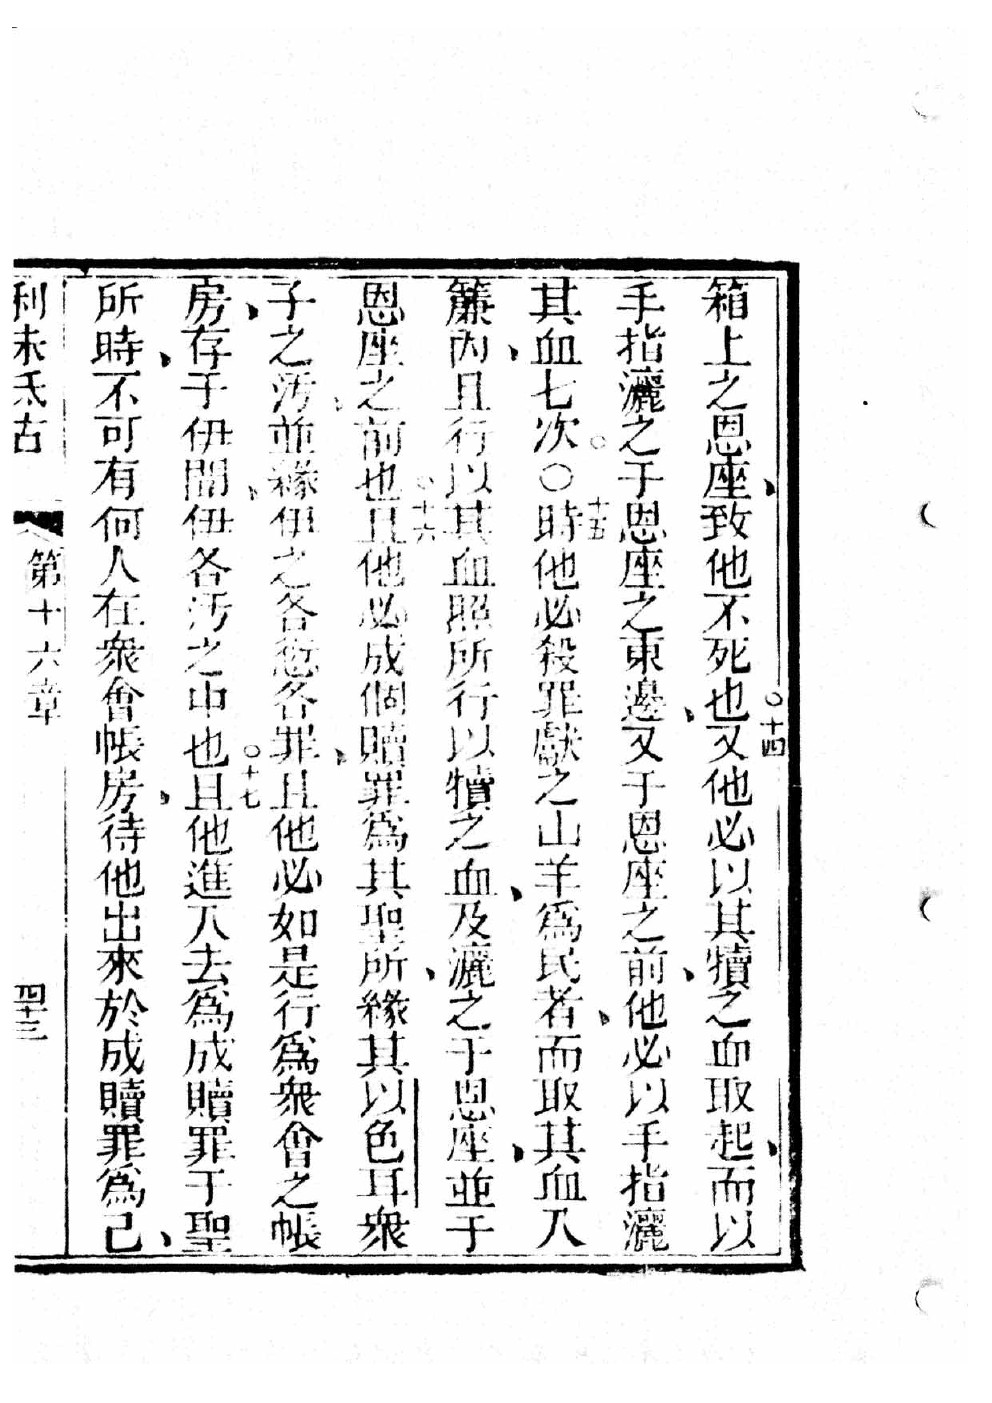 箱上之恩座、致他不死也○十四又他必以其犢之血取起、而以
手指灑之于恩座之東邊、又于恩座之前、他必以手指灑
其血七次○○十五時他必殺罪獻之山羊爲民者、而取其血入
簾內、且行以其血照所行以犢之血、及灑之于恩座、並于
恩座之前也○十六且他必成個贖罪爲其聖所、緣其以色耳衆
子之汚、並緣伊之各愆各罪、且他必如是行爲衆會之帳
房、存于伊間、伊各汚之中也○十七且他進入去爲成贖罪于聖
所時、不可有何人在衆會帳房、待他出來於成贖罪爲己、
利未氐古 第十六章 四十三